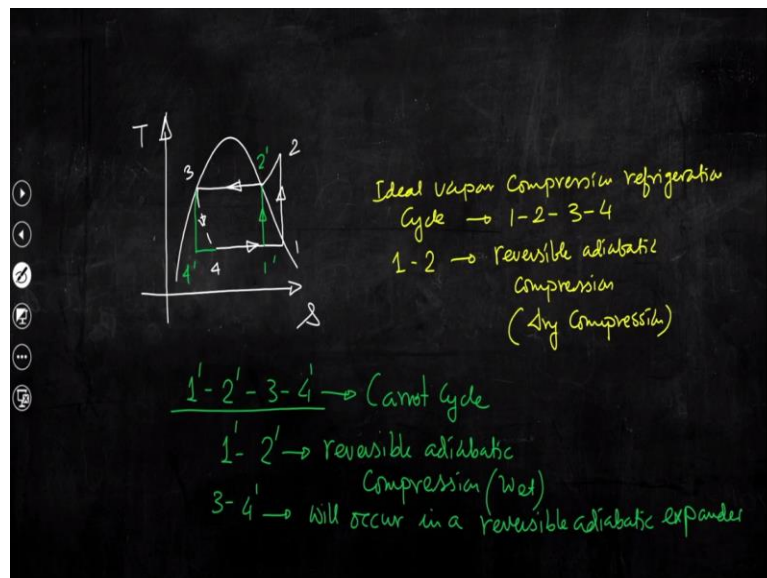 T
2
2'
3
1
1'
4
4'
s
Ideal vapour Compression refrigeration
Cycle → 1-2-3-4
1-2 → reversible adiabatic
compression
(dry Compression)
1'-2'-3-4' → Carnot Cycle
1'-2' → reversible adiabatic
Compression (Wet)
3-4' → will occur in a reversible adiabatic expander